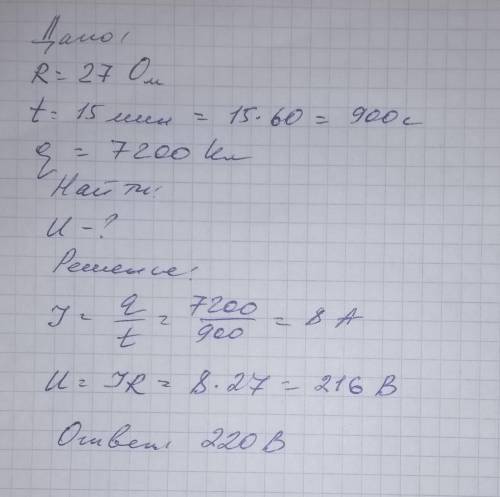 Дано:
R = 27 Ом
t = 15 мин = 15·60 = 900 с
q = 7200 Кл
Найти:
U - ?
Решение:
J = q/t = 7200/900 = 8 А
U = JR = 8·27 = 216 В
Ответ: 220 В